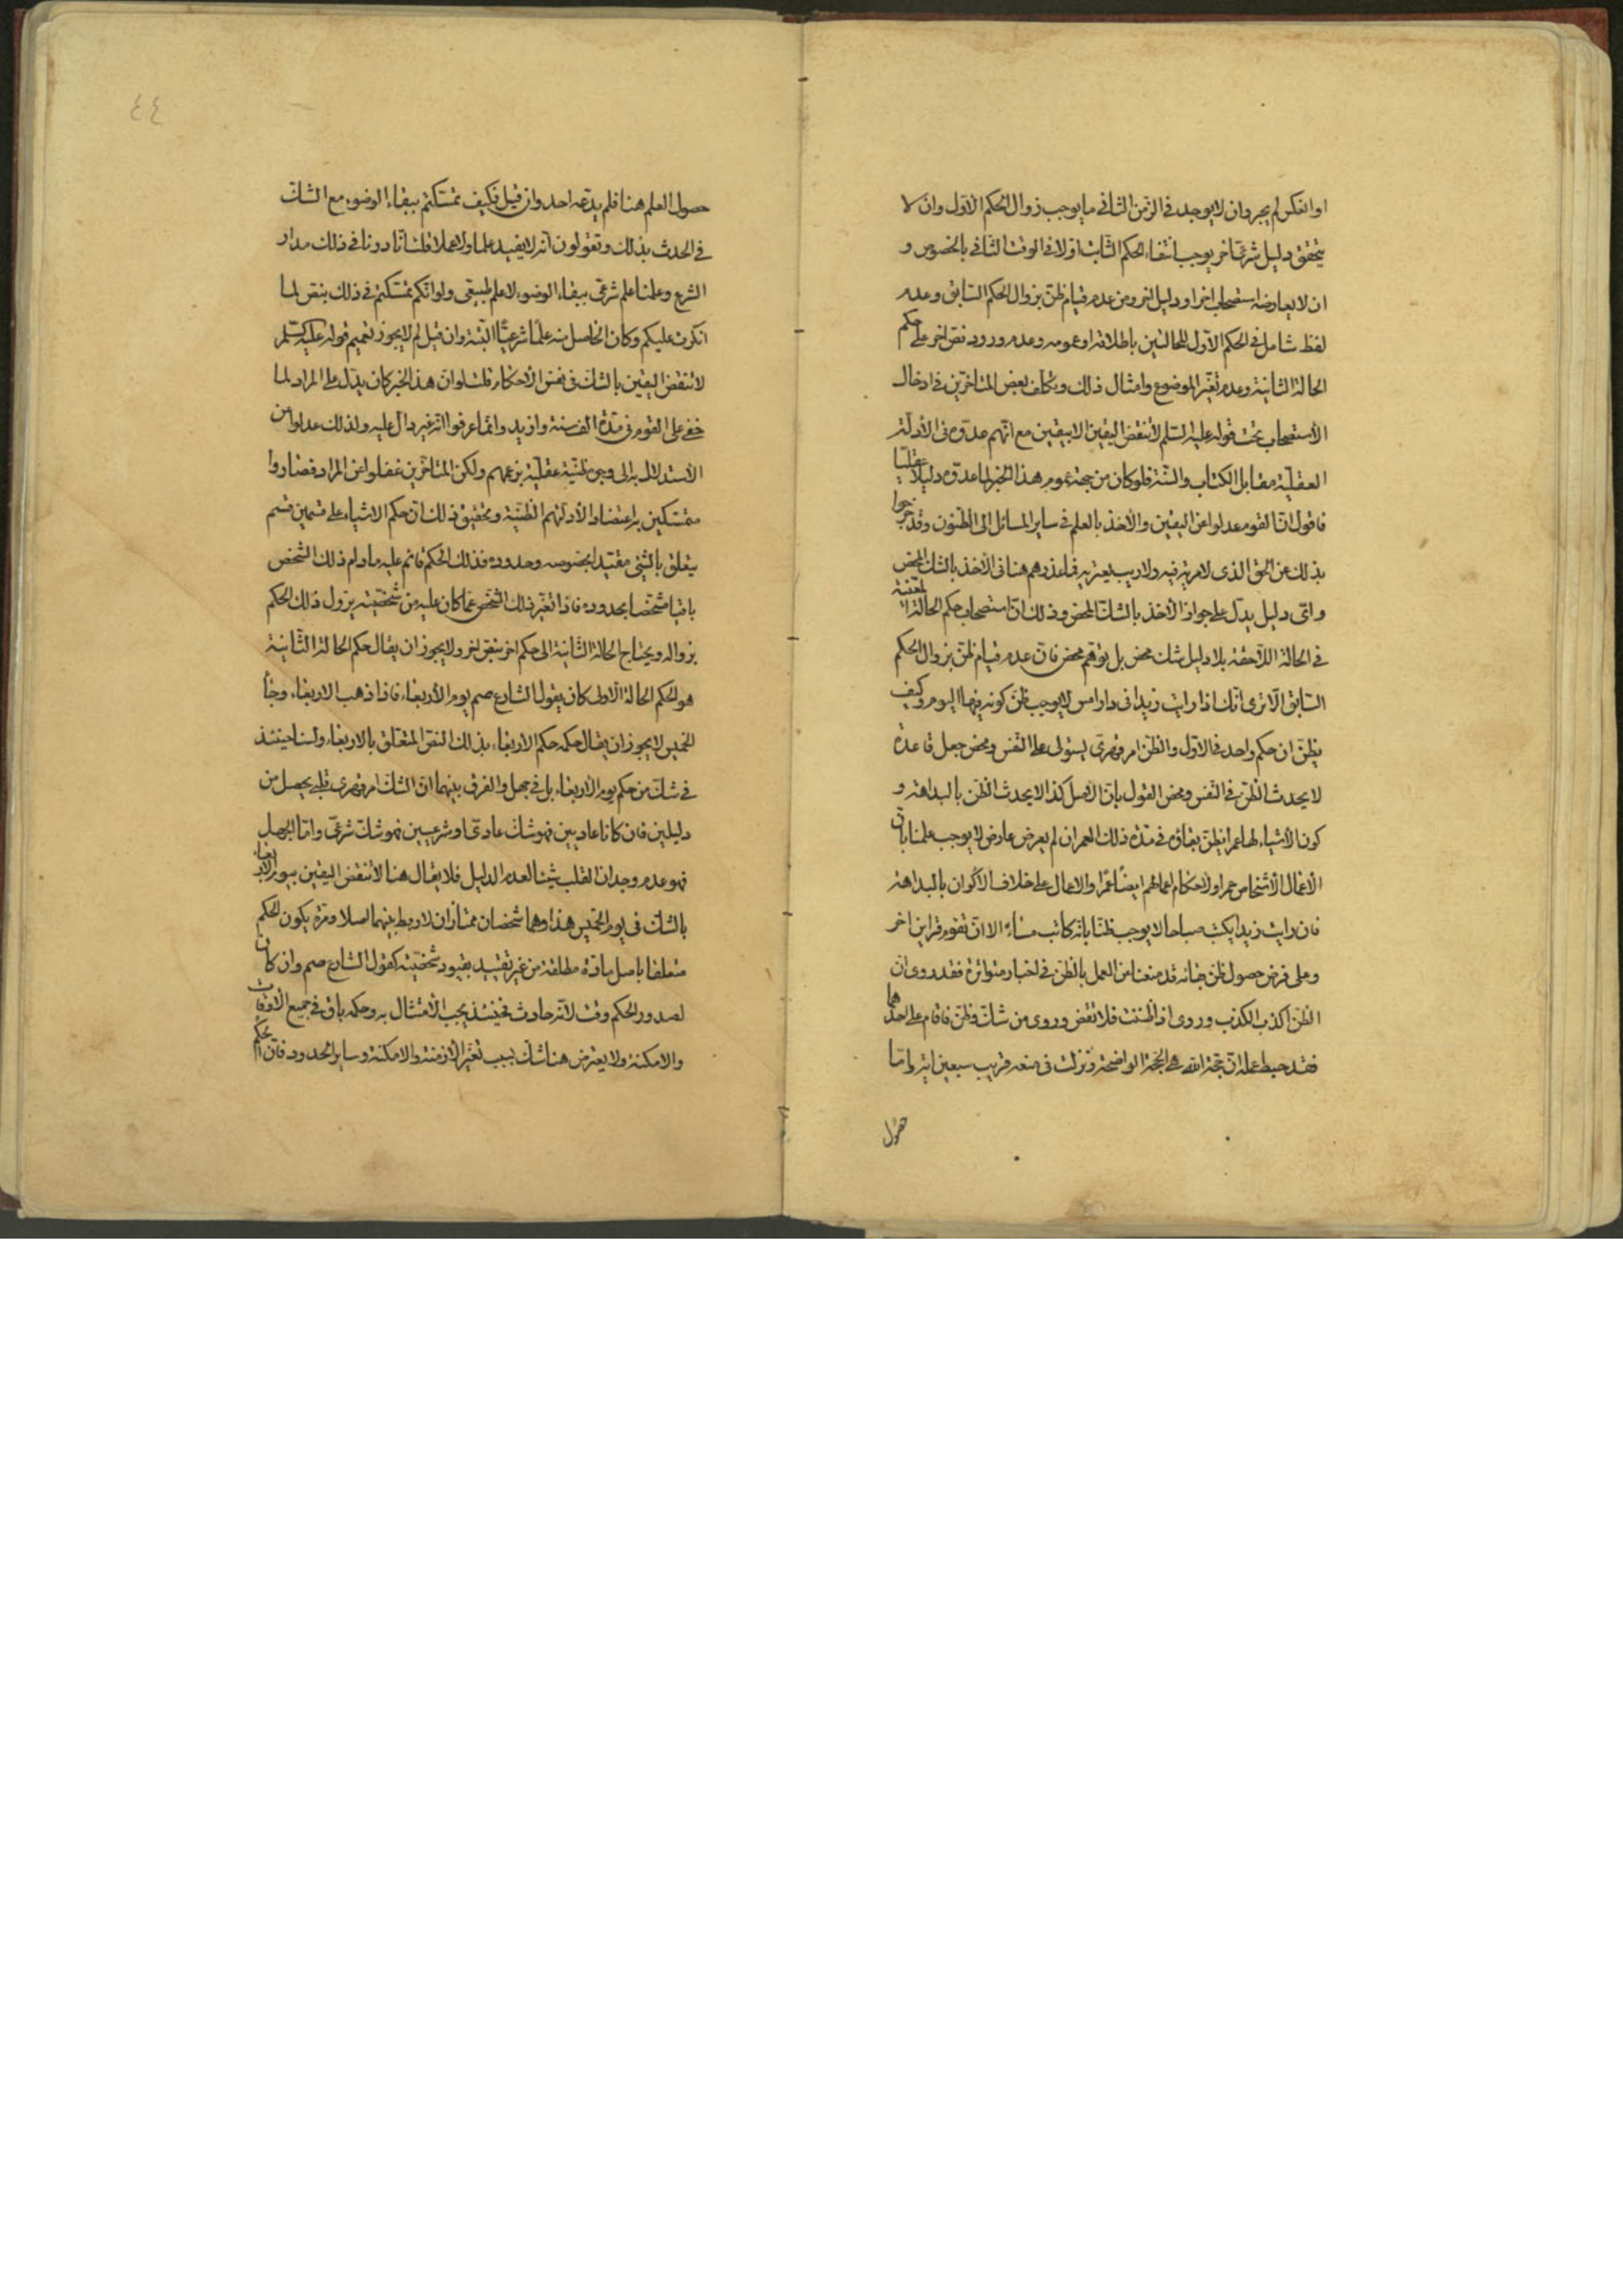 او انعكس لم يجر وان لا يوجد فى الزمن الثانى ما يوجب زوال الحكم الاول وان لا
يتحقق دليل شرعى اخر يوجب انتفاء الحكم الثابت اولا فى الوقت الثانى بالخصوص و
ان لا يعارضه استصحاب اخر او دليل اخر ومن عدم قيام ظن بزوال الحكم السابق وعدم
لفظ شامل فى الحكم الاول للحالتين باطلاقه او عمومه وعدم ورود نص اخر على حكم
الحالة الثانية وعدم تغير الموضوع وامثال ذلك وتكلف بعض المتاخرين فى ادخال
الاستصحاب تحت قوله عليه السلم لا تنقض اليقين الا بيقين مع انهم عدوه فى الادلة
العقلية مقابل الكتاب والسنة فلو كان من جهة عموم هذا الخبر لما عدوه دليلا عقليا
فاقول ان القوم عدلوا عن اليقين والاخذ بالعلم فى ساير المسائل الى الظنون وقد خرجوا
بذلك عن الحق الذى لا مرية فيه ولا ريب يعتريه فما عذرهم هنا فى الاخذ بالشك المحض
واى دليل يدل على جواز الاخذ بالشك المحض وذلك ان استصحاب حكم الحالة
فى الحالة اللاحقة بلا دليل شك محض بل توهم محض فان عدم قيام ظن بزوال الحكم
السابق الا ترى انك اذا رايت زيدا فى دار امس لا يوجب ظن كونه فيها اليوم وكيف
يظن ان حكم واحد فى الاول والظن امر قهرى يستولى على النفس ومحض جعل قاعدة
لا يحدث الظن فى النفس ومحض القول بان الاصل كذا لا يحدث الظن بالبداهة و
كون الاشياء لها عمرا يظن بقاؤه فى مدة ذلك العمر ان لم يعرض عارض لا يوجب علمنا بان
الاعمال الاشخاص عمر او لاحكام اعمالهم ايضا عمرا والاعمال على خلاف الاكوان بالبداهة
فان رايت زيدا يكتب صباحا لا يوجب ظنا بانه كاتب مساء الا ان تقوم قراين اخر
وعلى فرض حصول ظن فانه قد منعنا من العمل بالظن فى اخبار متواترة فقد روى ان
الظن اكذب الكذب وروى اذا ظننت فلا تقض وروى من شك وظن فاقام على احدهما
فقد حبط عمله ان حجة الله هى الحجة الواضحة ونزلت فى منعه قريب سبعين اية واما
حصول
٤٤
حصول العلم هنا فلم يدعه احد وان قيل فكيف تمسكتم ببقاء الوضوء مع الشك
فى الحدث بذلك وتقولون انه لا يفيد علما ولا عملا قلت انا درنا فى ذلك مدار
الشرع وعلمنا علم شرعى ببقاء الوضوء لا علم طبيعى ولو انكم تمسكتم فى ذلك بنص لما
انكرت عليكم وكان الحاصل منه علما شرعيا البتة وان قيل لم لا يجوز تعميم قوله عليه السلم
لا تنقض اليقين بالشك فى نفس الاحكام قلت لو ان هذا الخبر كان يدل على المراد لما
خفى على القوم فى مدة الف سنة وازيد وانما عرفوا انه غير دال عليه ولذلك عدلوا من
الاستدلال به الى وجوه ظنية عقلية بزعمهم ولكن المتاخرين غفلوا عن المراد فصاروا
متمسكين به اعتضادا لادلتهم الظنية وتحقيق ذلك ان حكم الاشياء على قسمين قسم
يتعلق بالشئ مقيدا بخصوصه وحدوده فذلك الحكم قائم عليه مادام ذلك الشخص
باقيا مشخصا بحدوده فاذا تغير ذلك الشخص عما كان عليه من شخصيته يزول ذلك الحكم
بزواله ويحتاج الحالة الثانية الى حكم اخر بنص اخر ولا يجوز ان يقال حكم الحالة الثانية
هو الحكم الحالة الاولى كان يقول الشارع صم يوم الاربعاء فاذا ذهب الاربعاء وجاء
الخميس لا يجوز ان يقال حكمه حكم الاربعاء بذلك النص المتعلق بالاربعاء ولسنا حينئذ
فى شك من حكم يوم الاربعاء بل فى جهل والفرق بينهما ان الشك امر قهرى قلبى يحصل من
دليلين فان كانا عاديين فهو شك عادى او شرعيين فهو شك شرعى واما الجهل
فهو عدم وجدان القلب شيئا لعدم الدليل فلا يقال هنا لا تنقض اليقين بيوم الاربعاء
بالشك فى يوم الخميس هذا وهما شخصان ممتازان لا ربط بينهما اصلا ومرة يكون الحكم
متعلقا باصل مادة مطلقة من غير تقييد بقيود شخصيته كقول الشارع صم وان كان
لصدور الحكم وقت لانه حادث فحينئذ يجب الامتثال به وحكمه باق فى جميع الاوقات
والامكنة ولا يعترض هنا شك بسبب تغير الازمنة والامكنة وساير الحدود فان الحكم